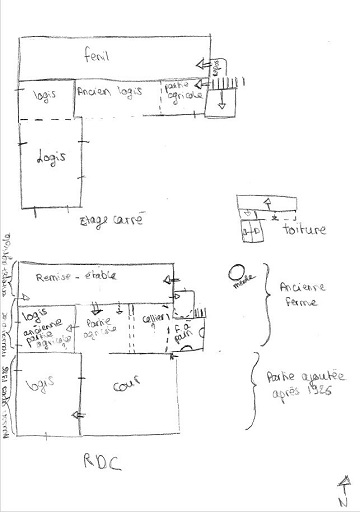 fenil
logis
Ancien logis
Partie
agricole
Logis
Etage carré
toiture
Remise - étable
logis
ancienne
partie
agricole
Partie
agricole
cellier
F à
pain
meule
Ancienne
ferme
logis
cour
Partie ajoutée
après 1926
RDC
N